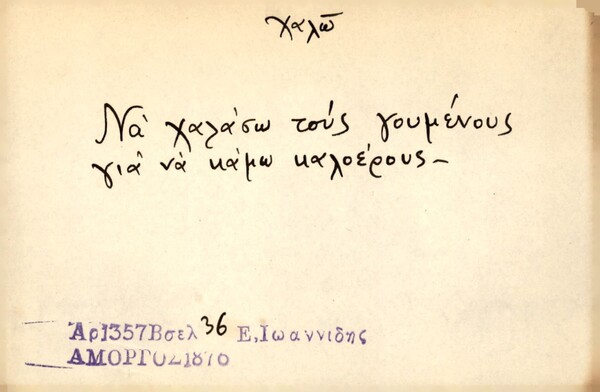 χαλῶ
Νὰ χαλάσω τοὺς γουμένους
γιὰ νὰ κάμω καλοέρους –
Αρ1357Βσελ 36 Ε,Ιωαννιδης
ΑΜΟΡΓΟΣ1876